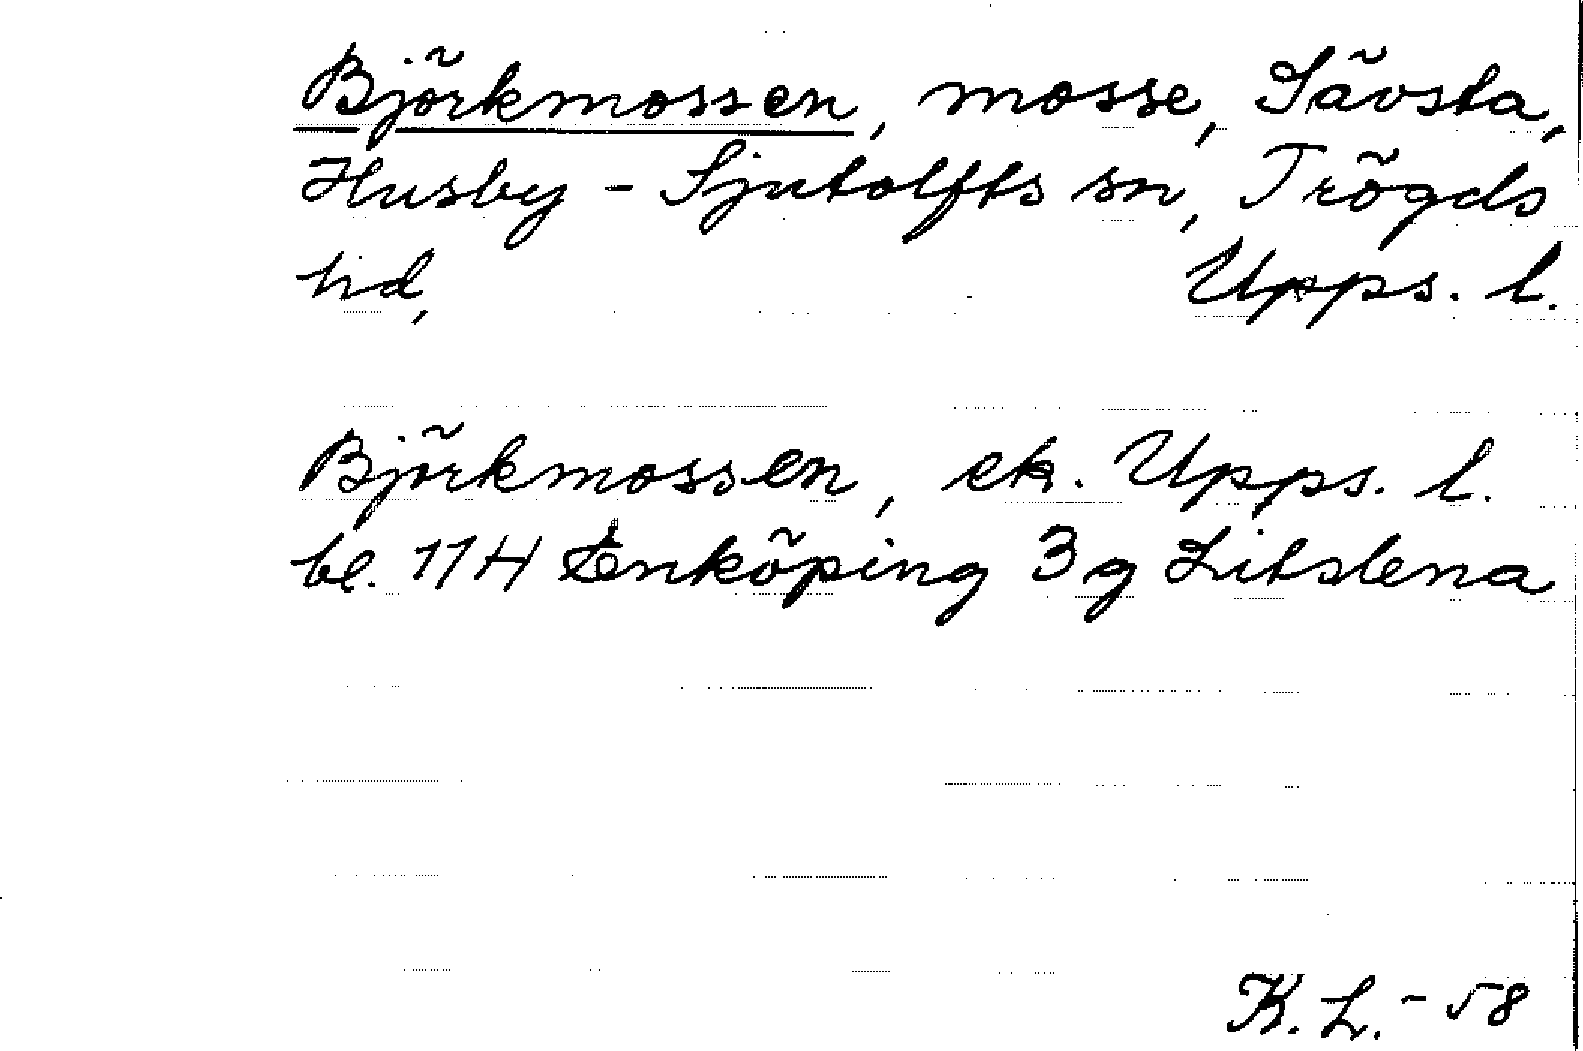 Björkmossen, mosse, Sävsta,
Husby-Sjutolfts sn, Trögds
hd, Upps. l.
Björkmossen, ek. Upps. l.
bl. 11H Enköping 3g Litslena
K. L. - 58